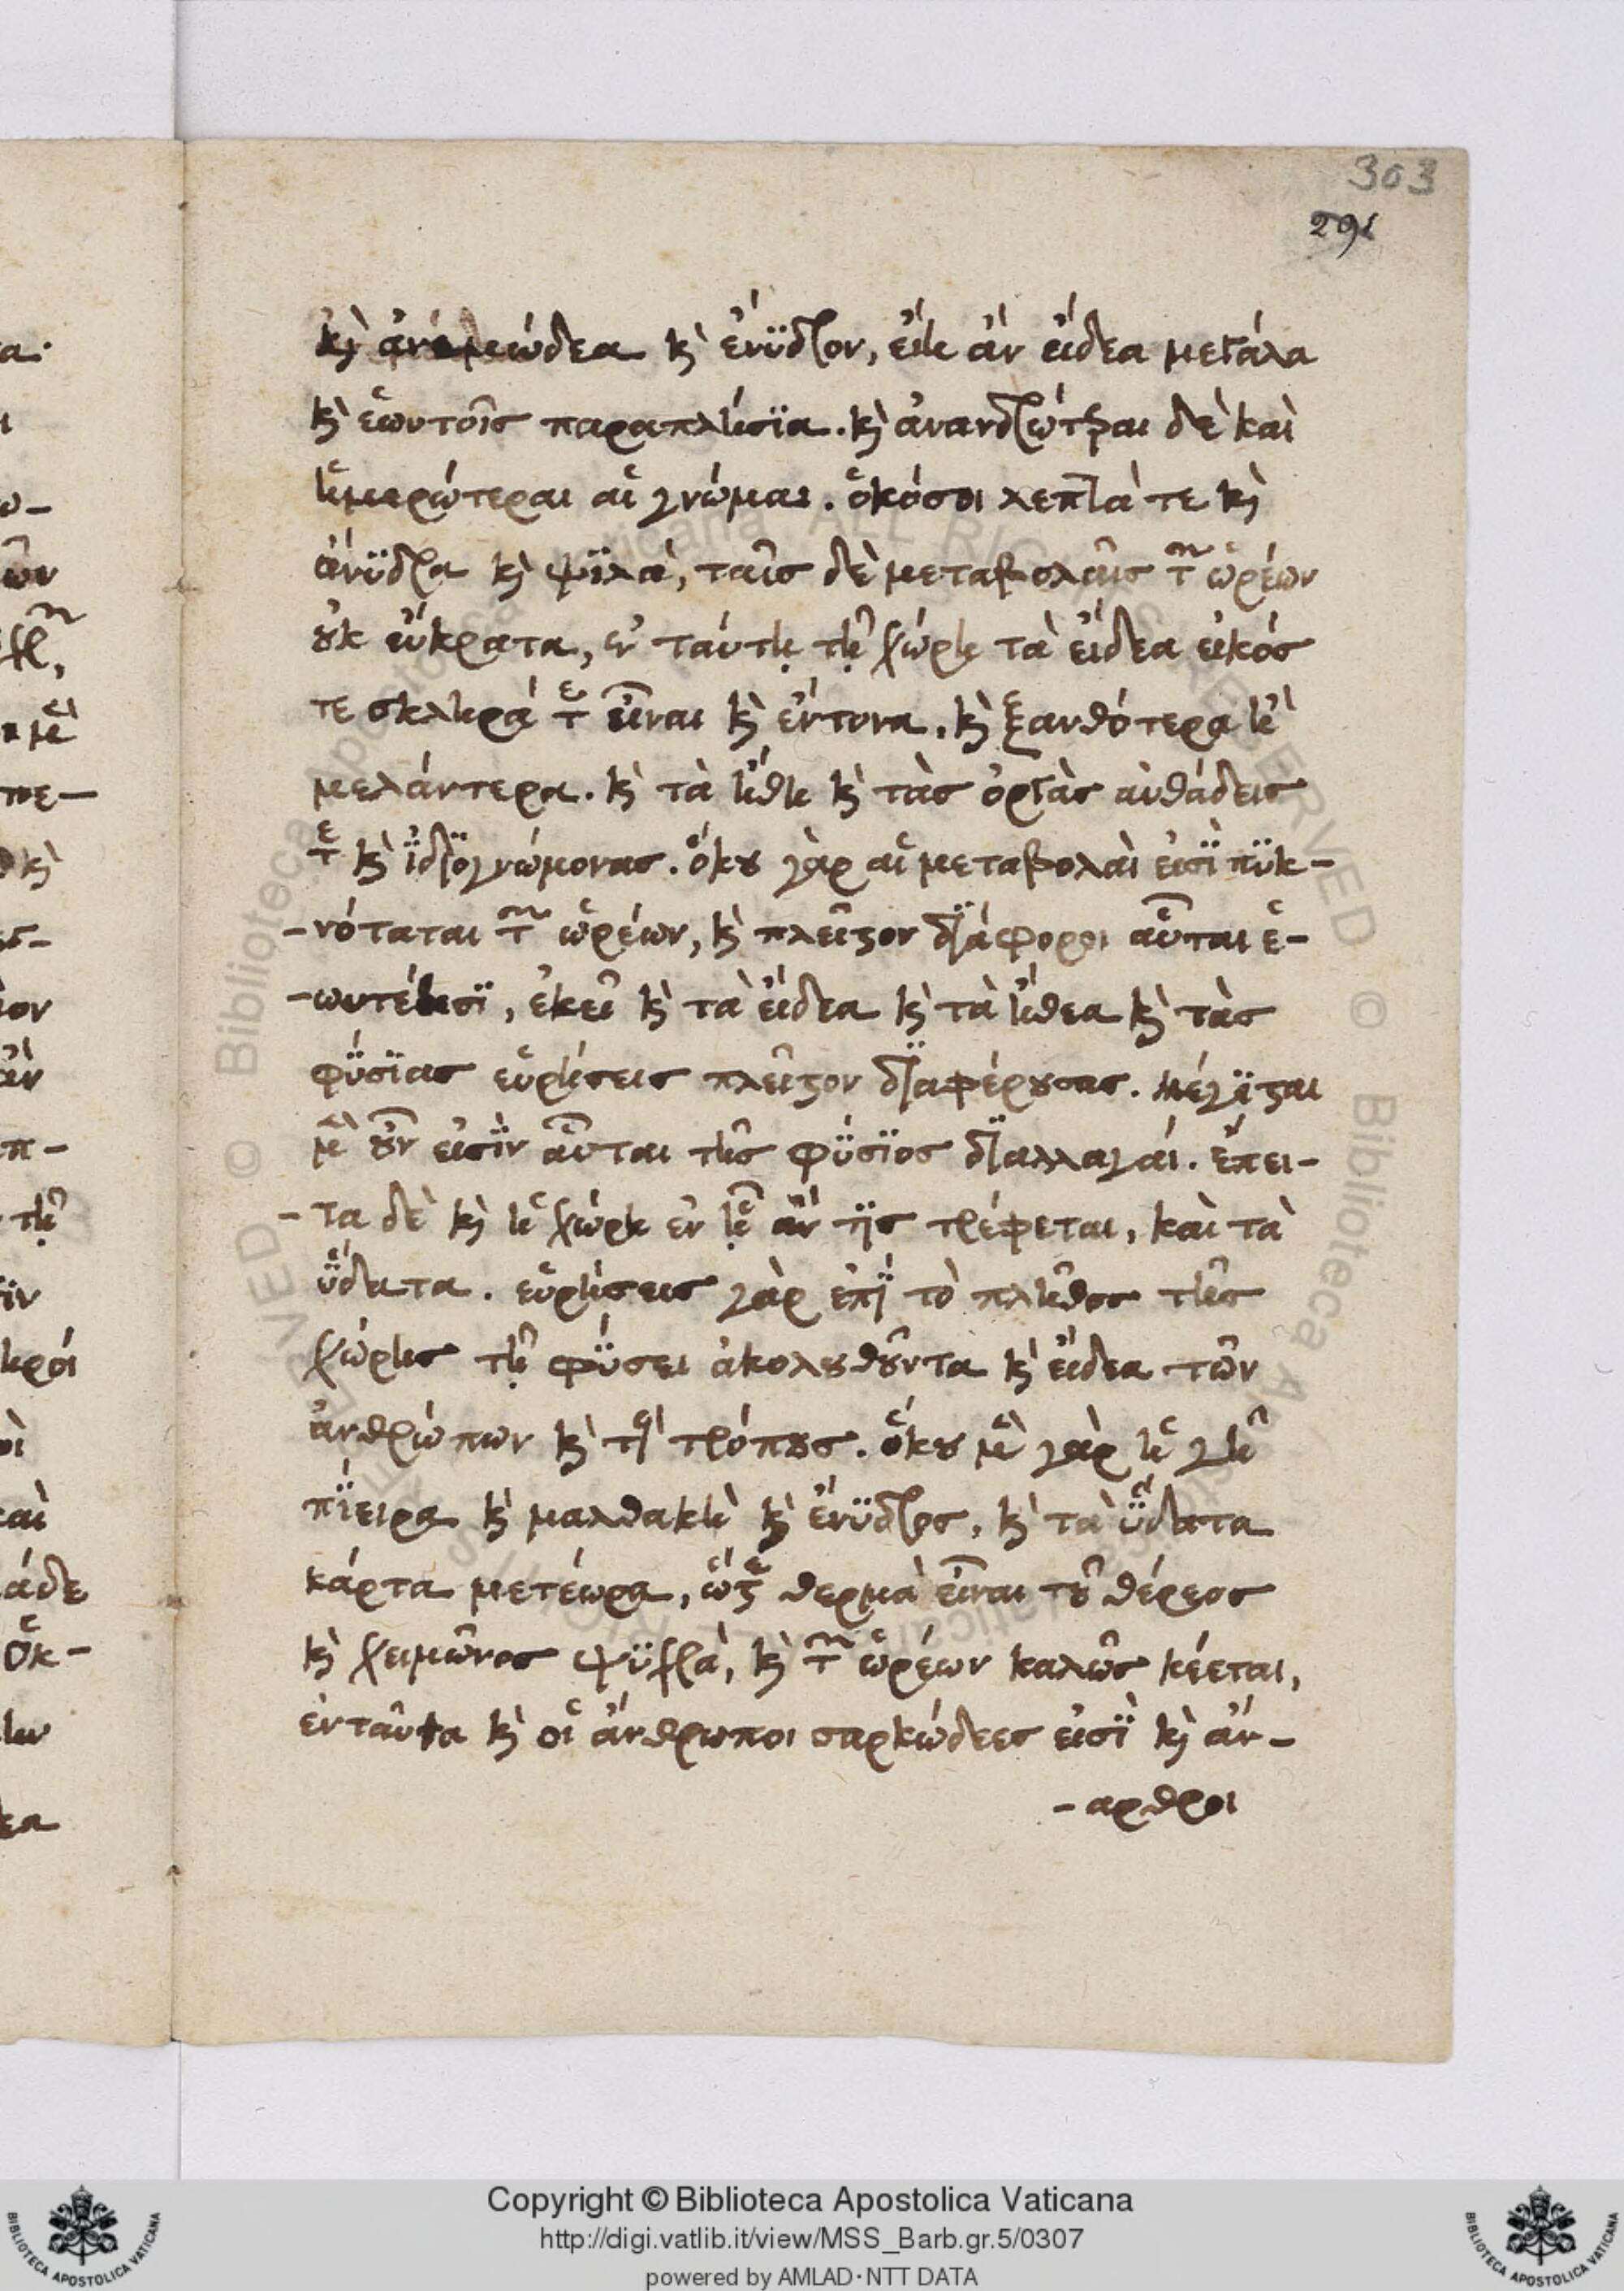 303
291
κὶ ἀνεμώδεα κὶ ἔνϋδρον, εἴη ἂν εἴδεα μεγάλα
κὶ ἑωυτοῖσ παραπλήσϊα. κὶ ἀνανδρώτεραι δὲ καὶ
ἡμερώτεραι αἱ γνώμαι. ὁκόσοι λεπτά τε κὶ
ἄνϋδρα κὶ ψϊλὰ, ταῖσ δὲ μεταβολαῖσ τῶν ὡρέων
οὐκ εὔκρατα, ἐν ταύτῃ τῇ χώρῃ τὰ εἴδεα εἰκόσ
τε σκληρά τε εἶναι κὶ ἔντονα, κὶ ξανθότερα ἢ
μελάντερα. κὶ τὰ ἤθη κὶ τὰσ ὀργὰσ αὐθάδεισ
τε κὶ ἰδϊογνώμονασ. ὅκου γὰρ αἱ μεταβολαὶ εἰσϊ πϋκ-
-νόταται τῶν ὡρέων, κὶ πλεῖστον δϊάφοροι αὗται ἑ-
-ωυτέῃσϊ, ἐκεῖ κὶ τὰ εἴδεα κὶ τὰ ἤθεα κὶ τὰσ
φύσϊασ εὑρήσεισ πλεῖστον δϊαφέρουσασ. μέγϊσται
μὲν οὖν εἰσῒν αὗται τῆσ φύσϊοσ δϊαλλαγάι. ἔπει-
-τα δὲ κὶ ἡ χώρη ἐν ᾗ ἄν τϊσ τρέφεται, καὶ τὰ
ὕδατα. εὑρήσεισ γὰρ ἐπῒ τὸ πλῆθοσ τῆσ
χώρησ τῇ φύσει ἀκολουθοῦντα κὶ εἴδεα τῶν
ἀνθρώπων κὶ τοὺσ τρόπουσ. ὅκου μὲν γὰρ ἡ γῆ
πΐειρα κὶ μαλθακὴ κὶ ἔνϋδροσ, κὶ τὰ ὕδατα
κάρτα μετέωρα, ὥστε θερμὰ εἶναι τοῦ θέρεοσ
κὶ χειμῶνοσ ψϋχρὰ, κὶ τῶν ὡρέων καλῶσ κέεται,
ἐνταῦτα κὶ οἱ ἄνθρωποι σαρκώδεεσ εἰσῒ κὶ ἄν-
-αρθροι
Copyright © Biblioteca Apostolica Vaticana
http://digi.vatlib.it/view/MSS_Barb.gr.5/0307
powered by AMLAD·NTT DATA